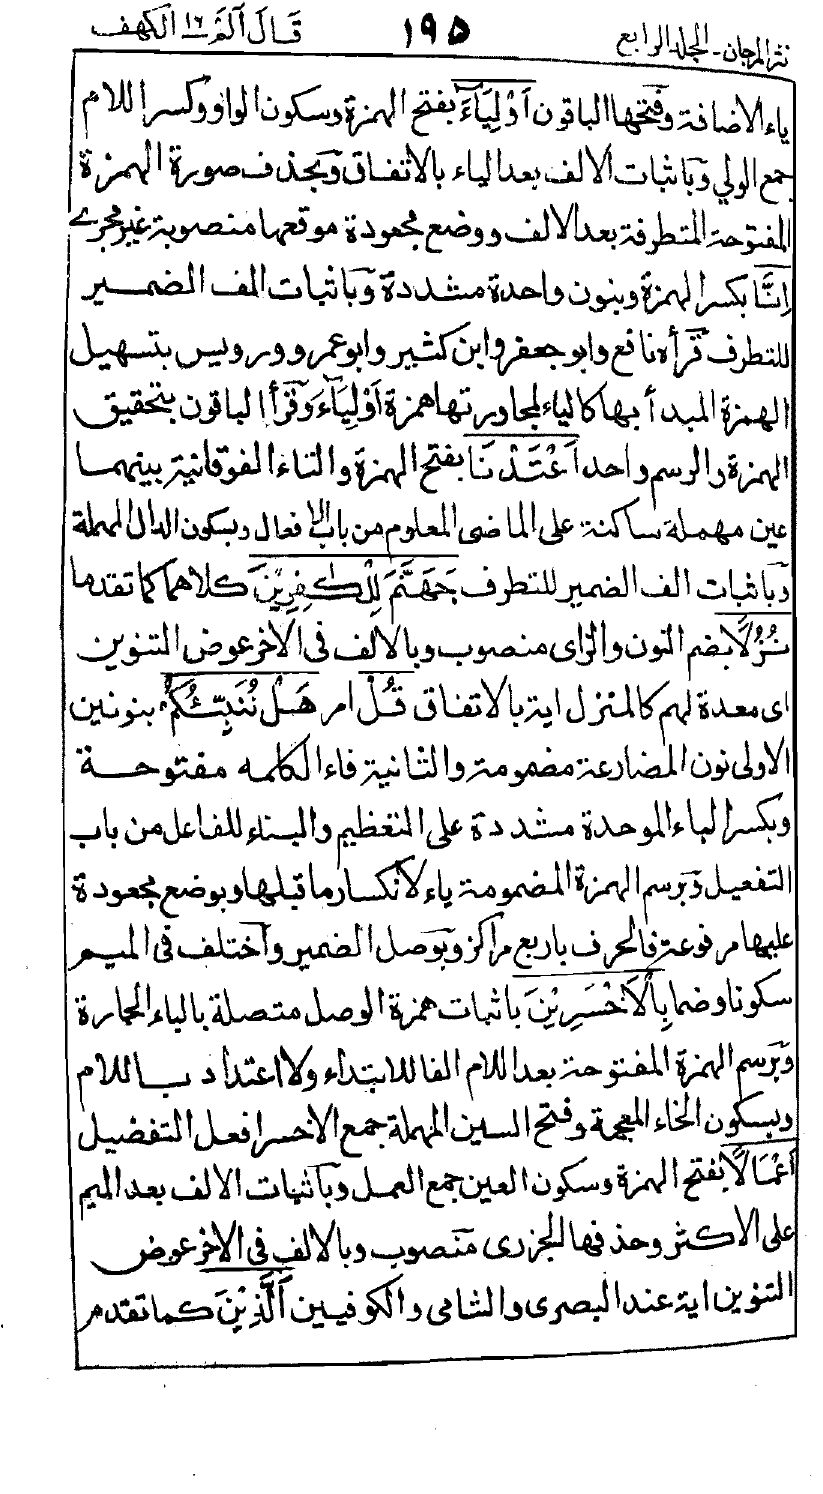 نثر المرجان - المجلد الرابع ١٩٥ قال ألم ١٦ الكهف
ياء الاضافة وفتحها الباقون اَوْلِيَاءَ بفتح الهمزة وسكون الواو وكسر اللام
جمع الولي وباثبات الالف بعد الياء بالاتفاق وبحذف صورة الهمزة
المفتوحة المتطرفة بعد الالف ووضع مجعودة موقعها منصوبة غير مجرے
اِنَّا بكسر الهمزة وبنون واحدة مشددة وباثبات الف الضمير
للتطرف قرأه نافع وابو جعفر وابن كثير وابو عمرو ورويس بتسهيل
الهمزة المبدأ بها كالياء لمجاورتها همزة اَوْلِيَاءَ وقرأ الباقون بتحقيق
الهمزة والرسم واحد اَعْتَدْنَا بفتح الهمزة والتاء الفوقانية بينهما
عين مهملة ساكنة على الماضى المعلوم من باب الافعال وبسكون الدال المهملة
وباثبات الف الضمير للتطرف جَهَنَّمَ لِلْكٰفِرِيْنَ كلاهما كما تقدما
نُزُلًا بضم النون والزاى منصوب وبالالف فى الاخر عوض التنوين
اى معدة لهم كالمنزل اية بالاتفاق قُلْ امر هَلْ نُنَبِّئُكُمْ بنونين
الاولى نون المضارعة مضمومة والثانية فاء الكلمه مفتوحة
وبكسر الباء الموحدة مشددة على التعظيم والبناء للفاعل من باب
التفعيل وبرسم الهمزة المضمومة ياء لانكسار ما قبلها وبوضع مجعودة
عليها مرفوعة فالحرف باربع مراكز وبوصل الضمير واختلف فى الميم
سكونا وضما بِالْاَخْسَرِيْنَ باثبات همزة الوصل متصلة بالباء الجارة
وبرسم الهمزة المفتوحة بعد اللام الفا للابتداء ولا اعتداد باللام
وبسكون الخاء المعجمة وفتح السين المهملة جمع الاخسر افعل التفضيل
اَعْمَالًا بفتح الهمزة وسكون العين جمع العمل وباثبات الالف بعد الميم
على الاكثر وحذفها الجزرى منصوب وبالالف فى الاخر عوض
التنوين اية عند البصرى والشامى والكوفيين اَلَّذِيْنَ كما تقدم